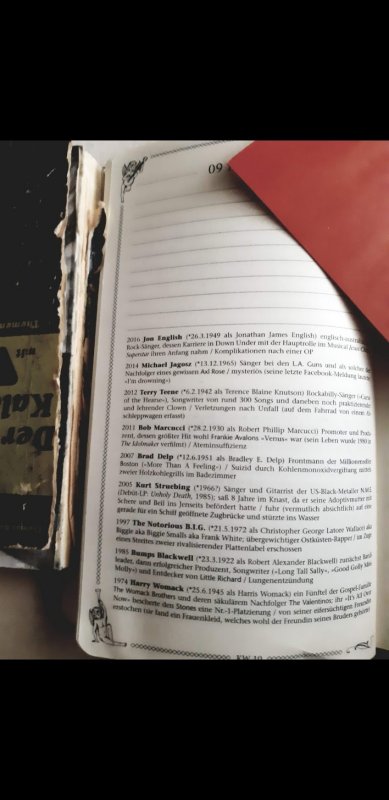 09
2016 Jon English (*26.3.1949 als Jonathan James English) englisch-
Rock-Sänger, dessen Karriere in Down Under mit der Hauptrolle im Musical Jesus
Superstar ihren Anfang nahm / Komplikationen nach einer OP
2014 Michael Jagosz (*13.12.1965) Sänger bei den L.A. Guns und als solcher
Nachfolger eines gewissen Axl Rose / mysteriös (seine letzte Facebook-Meldung
»I'm drowning«)
2012 Terry Teene (*6.2.1942 als Terence Blaine Knutson) Rockabilly-Sänger
of the Hearse«), Songwriter von rund 300 Songs und daneben noch praktizierender
und lehrender Clown / Verletzungen nach Unfall (auf dem Fahrrad von einem
schleppwagen erfasst)
2011 Bob Marcucci (*28.2.1930 als Robert Phillip Marcucci) Promoter und
zent, dessen größter Hit wohl Frankie Avalons »Venus« war (sein Leben wurde 1980 in
The Idolmaker verfilmt) / Ateminsuffizienz
2007 Brad Delp (*12.6.1951 als Bradley E. Delp) Frontmann der Millionenseller
Boston (»More Than A Feeling«) / Suizid durch Kohlenmonoxidvergiftung mittels
zweier Holzkohlegrills im Badezimmer
2005 Kurt Struebing (*1966?) Sänger und Gitarrist der US-Black-Metaller N.M.E.
(Debüt-LP: Unholy Death, 1985); saß 8 Jahre im Knast, da er seine Adoptivmutter mit
Schere und Beil ins Jenseits befördert hatte / fuhr (vermutlich absichtlich) auf eine
gerade für ein Schiff geöffnete Zugbrücke und stürzte ins Wasser
1997 The Notorious B.I.G. (*21.5.1972 als Christopher George Latore Wallace) aka
Biggie aka Biggie Smalls aka Frank White; übergewichtiger Ostküsten-Rapper / im Zuge
eines Streites zweier rivalisierender Plattenlabel erschossen
1985 Bumps Blackwell (*23.3.1922 als Robert Alexander Blackwell) zunächst Band-
leader, dann erfolgreicher Produzent, Songwriter (»Long Tall Sally«, »Good Golly Miss
Molly«) und Entdecker von Little Richard / Lungenentzündung
1974 Harry Womack (*25.6.1945 als Harris Womack) ein Fünftel der Gospel-Familie
The Womack Brothers und deren säkularem Nachfolger The Valentinos; ihr »It's All Over
Now« bescherte den Stones eine Nr.-1-Platzierung / von seiner eifersüchtigen Freundin
erstochen (sie fand ein Frauenkleid, welches wohl der Freundin seines Bruders gehörte)
KW 10
Der
Kal
mit